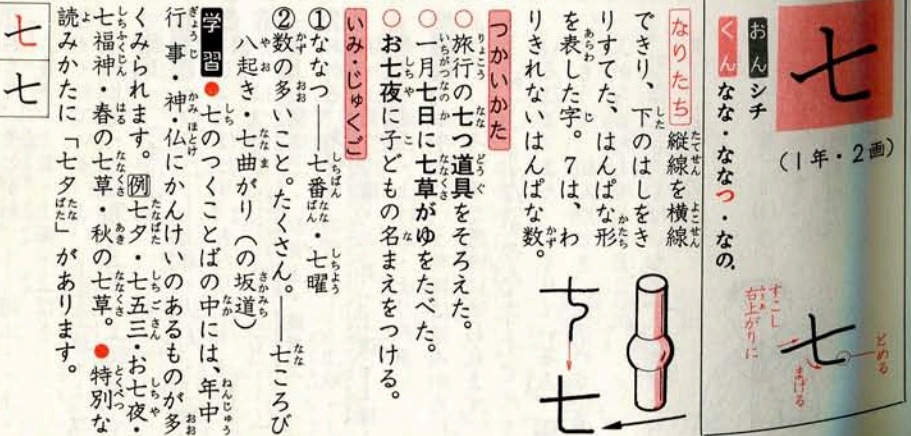 七
(1年・2画)
おん シチ
くん なな・ななつ・なの
すこし
右上がりに
とめる
まげる
なりたち 縦線を横線
できり、下のはしをき
りすてた、はんぱな形
を表した字。7は、わ
りきれないはんぱな数。
つかいかた
○旅行の七つ道具をそろえた。
○一月七日に七草がゆをたべた。
○お七夜に子どもの名まえをつける。
いみ・じゅくご
①ななつ——七番・七曜
②数の多いこと。たくさん。——七ころび
八起き・七曲がり(の坂道)
学習 ●七のつくことばの中には、年中
行事・神・仏にかんけいのあるものが多
くみられます。例七夕・七五三・お七夜・
七福神・春の七草・秋の七草。●特別な
読みかたに「七夕」があります。
七
七